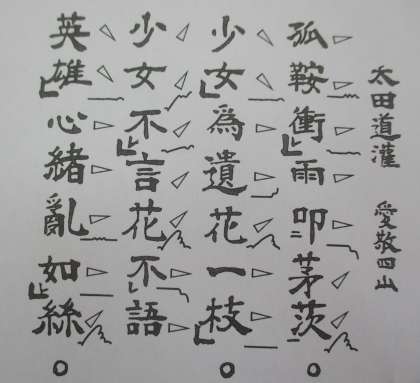 太田道灌 愛敬四山
孤鞍衝雨叩茅茨
少女爲遺花一枝
少女不言花不語
英雄心緒亂如絲